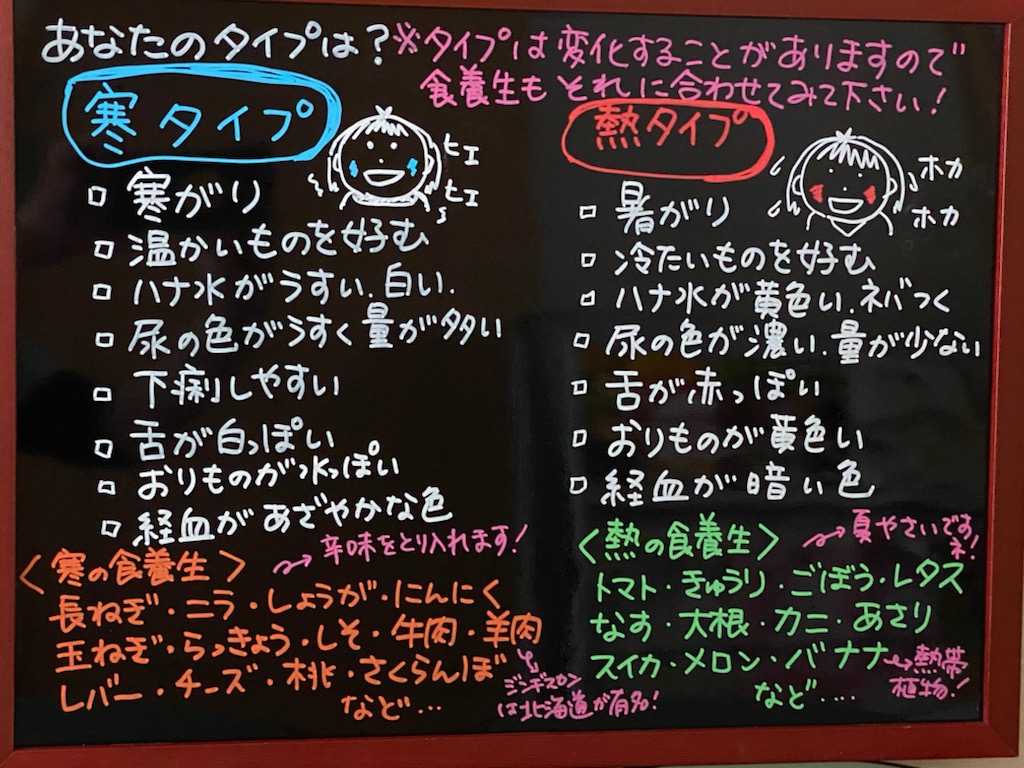 あなたのタイプは？※タイプは変化することがありますので
食養生もそれに合わせてみて下さい！
寒タイプ
ヒエ
ヒエ
□ 寒がり
□ 温かいものを好む
□ ハナ水がうすい、白い、
□ 尿の色がうすく量が多い
□ 下痢しやすい
□ 舌が白っぽい
□ おりものが水っぽい
□ 経血があざやかな色
熱タイプ
ホカ
ホカ
□ 暑がり
□ 冷たいものを好む
□ ハナ水が黄色い、ネバつく
□ 尿の色が濃い、量が少ない
□ 舌が赤っぽい
□ おりものが黄色い
□ 経血が暗い色
〈寒の食養生〉
→辛味をとり入れます！
長ねぎ・ニラ・しょうが・にんにく
玉ねぎ・らっきょう・しそ・牛肉・羊肉
レバー・チーズ・桃・さくらんぼ
など…
→ジンギスカン
は北海道が有名！
〈熱の食養生〉
→夏やさいです
ネ！
トマト・きゅうり・ごぼう・レタス
なす・大根・カニ・あさり
スイカ・メロン・バナナ→熱帯
植物！
など‥‥